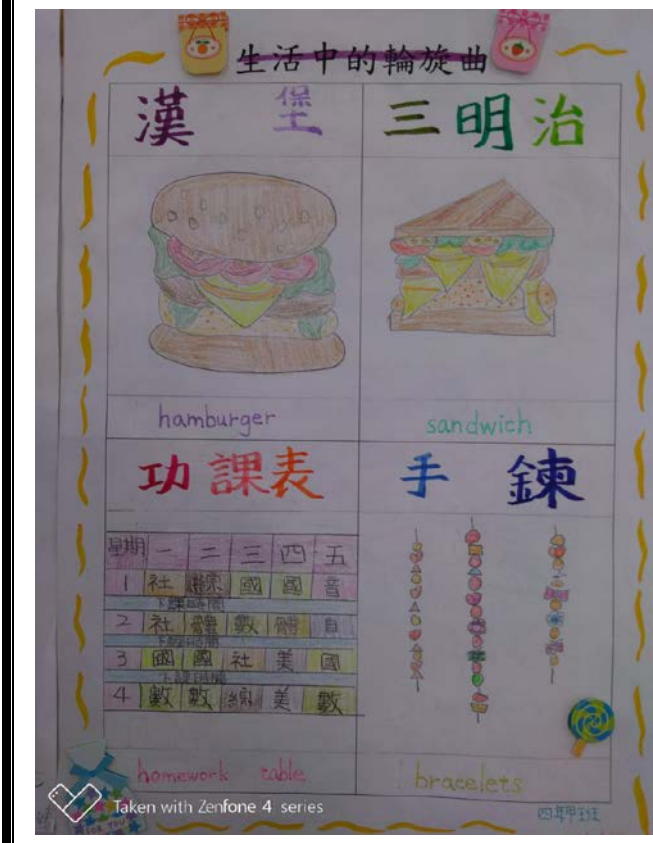 生活中的輪旋曲
漢堡
三明治
hamburger
sandwich
功課表
手鍊
星期 一 二 三 四 五
1 社 綜 國 國 音
下課時間
2 社 體 數 體 自
下課時間
3 國 國 社 美 國
下課時間
4 數 數 綜 美 數
homework table
bracelets
四年甲班
FOR YOU
Taken with Zenfone 4 series